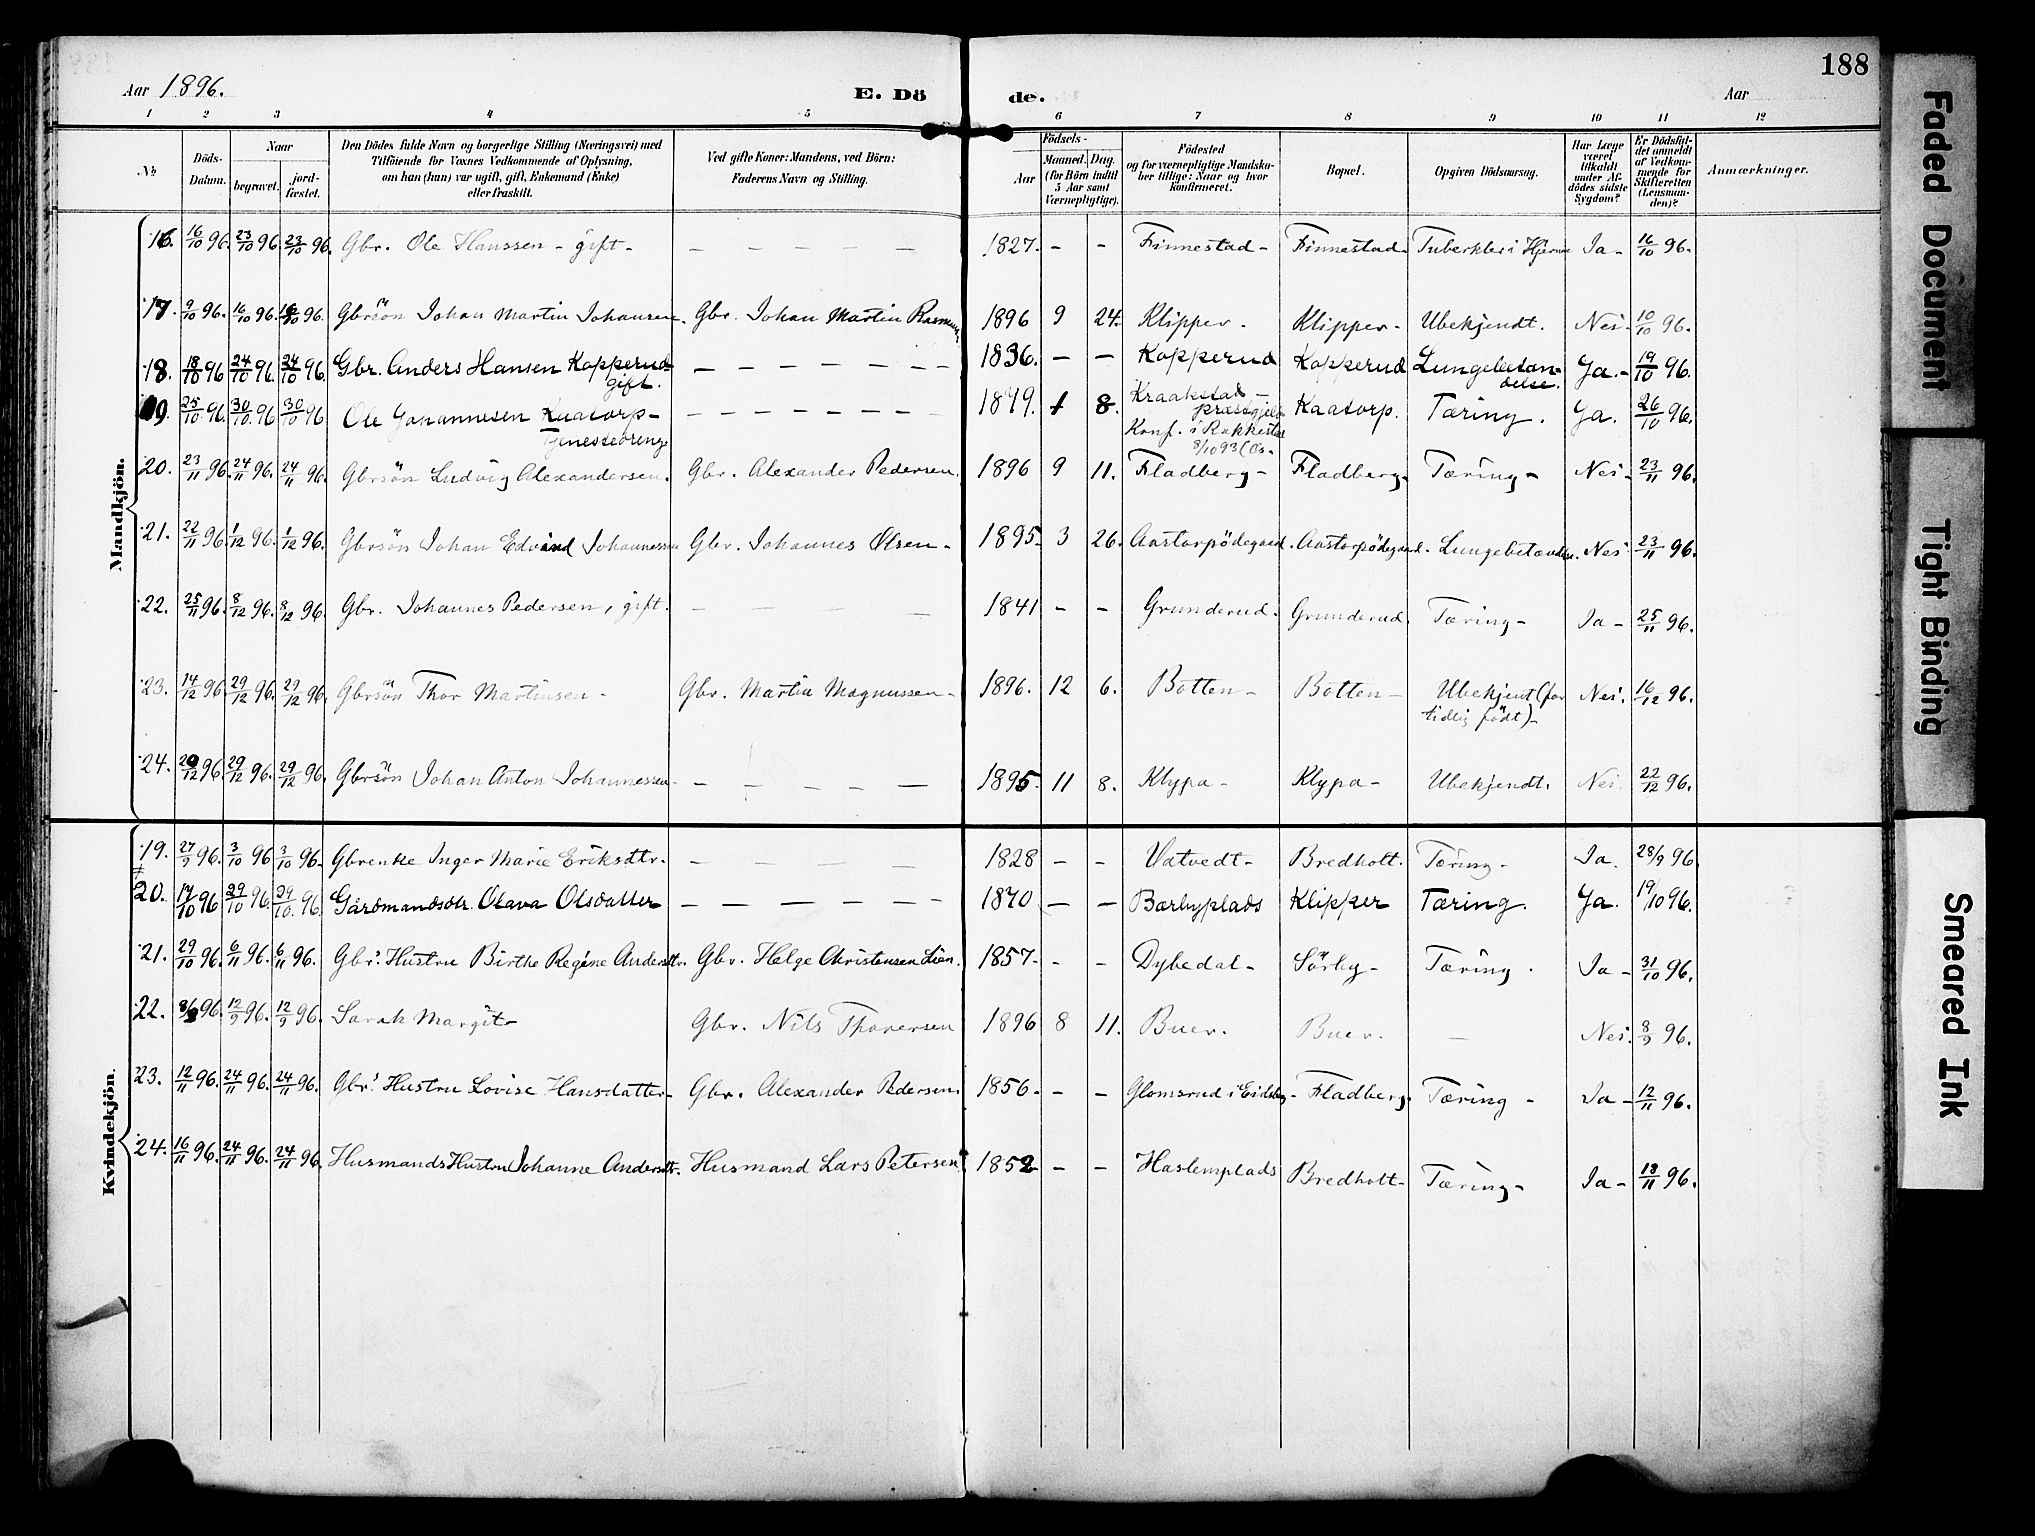 188
Aar 1896.
E. Döde.
Aar
1 2 3 4 5 6 7 8 9 10 11 12
No
Döds-Datum.
Naar
begravet.
jord-fæstet.
Den Dödes fulde Navn og borgerlige Stilling (Næringsvei) med
Tilföiende for Voxnes Vedkommende af Oplysning,
om han (hun) var ugift, gift, Enkemand (Enke)
eller fraskilt.
Ved gifte Koner: Mandens, ved Börn:
Faderens Navn og Stilling.
Födsels-
Aar
Maaned. Dag.
(for Börn indtil
5 Aar samt
Værnepligtige).
Födested
og for værnepligtige Mandsko-
ber tillige: Naar og hvor
konfirmeret.
Bopæl.
Opgiven Dödsaarsag.
Har Læge
været
tilkaldt
under Af-
dödes sidste
Sygdom?
Er Dödsfal-
det anmeldt
af Vedkom-
mende for
Skifteretten
(Lensman-
den)?
Anmærkninger.
Mandkjön.
16. 16/10 96. 23/10 96 23/10 96. Gbr. Ole Hanssen - gift - — 1827. - - Finnestad - Finnestad - Tuberkler i Hjerne Ja - 16/10 96.
17. 9/10 96. 16/10 96. 16/10 96. Gbrsön Johan Martin Johansen. Gbr. Johan Martin Rasmus 1896 9 24. Klipper. Klipper - Ubekjendt. Nei. 10/10 96.
18. 18/10 96 24/10 96. 24/10 96. Gbr. Anders Hansen Kopperud gift. — 1836. — — Kopperud Kopperud Lungebetændelse. Ja. - 19/10 96.
19. 25/10 96. 30/10 96 30/10 96 Ole Johannesen Kaatorp - Tjenestedreng — 1879. 1 8. Kraakstad præstgjeld Konf. i Rakkestad 8/10 93 Kaatorp. Tæring. Ja. 26/10 96.
20. 23/11 96. 24/11 96. 24/11 96. Gbrsön Ludvig Alexandersen. Gbr. Alexander Pedersen. 1896 9 11. Fladberg - Fladberg. Tæring - Nei - 23/11 96.
21. 22/11 96. 1/12 96. 1/12 96. Gbrsön Johan Edvind Johannessen Gbr. Johannes Olsen - 1895. 3 26. Aastorpödegaard. Aastorpödegaard. Lungebetændelse. Nei. 23/11 96.
22. 25/11 96. 8/12 96. 8/12 96. Gbr. Johannes Pedersen, gift. — 1841 - - Grunderud. Grunderud. Tæring - Ja - 25/11 96.
23. 14/12 96. 29/12 96. 29/12 96. Gbrsön Thor Martinsen - Gbr. Martin Magnussen - 1896. 12 6. Botten - Botten - Ubekjent (for tidlig födt) - Nei. 16/12 96.
24. 20/12 96. 29/12 96. 29/12 96. Gbrsön Johan Anton Johannessen - — 1895. 11 8. Klypa - Klypa - Ubekjendt. Nei. 22/12 96.
Kvindekjön.
19. 27/9 96. 3/10 96 3/10 96. Gbrenke Inger Marie Eriksdtr. — 1828 - - Vatvedt - Bredholt. Tæring - Ja. 28/9 96.
20. 17/10 96 29/10 96. 29/10 96. Gårdmandsdtr. Olava Olsdatter — 1870 — — Bærbyplads Klipper Tæring. Ja. 19/10 96.
21. 29/10 96. 6/11 96. 6/11 96. Gbr's Hustru Birthe Regine Andersdtr. Gbr. Helge Christensen Lien. 1857. - - Dybedal - Sörby - Tæring. Ja - 31/10 96.
22. 8/9 96. 12/9 96. 12/9 96. Sarah Margit - Gbr. Nils Thoresen 1896 8 11. Buer. Buer. — Nei. 8/9 96.
23. 12/11 96. 24/11 96. 24/11 96. Gbr's Hustru Lovise Hansdatter - Gbr. Alexander Pedersen. 1856. - - Glomsrud i Eidsberg - Fladberg. Tæring - Ja - 12/11 96.
24. 16/11 96. 24/11 96. 24/11 96. Husmands Hustru Johanne Andersdtr. Husmand Lars Petersen 1852 - - Haslemplads Bredholt - Tæring - Ja - 18/11 96.
Faded Document
Tight Binding
Smeared Ink